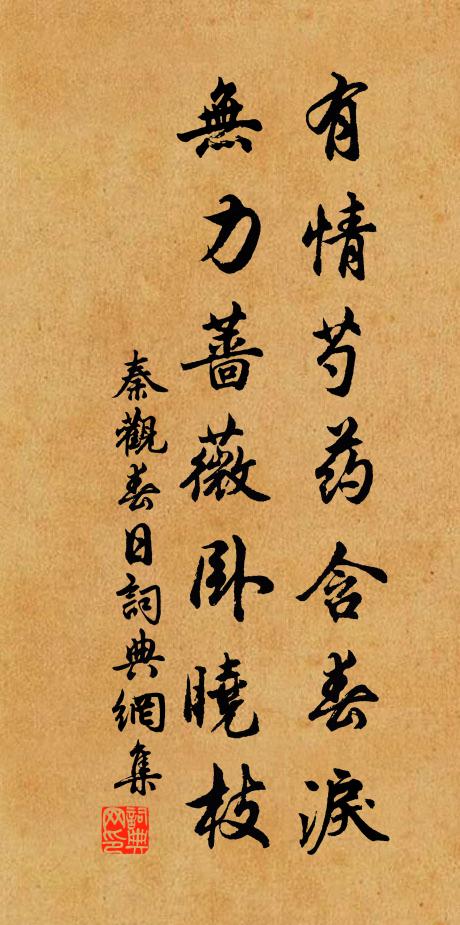 有情芍药含春淚
無力薔薇卧曉枝
秦觀春日詞典網集
詞典网印